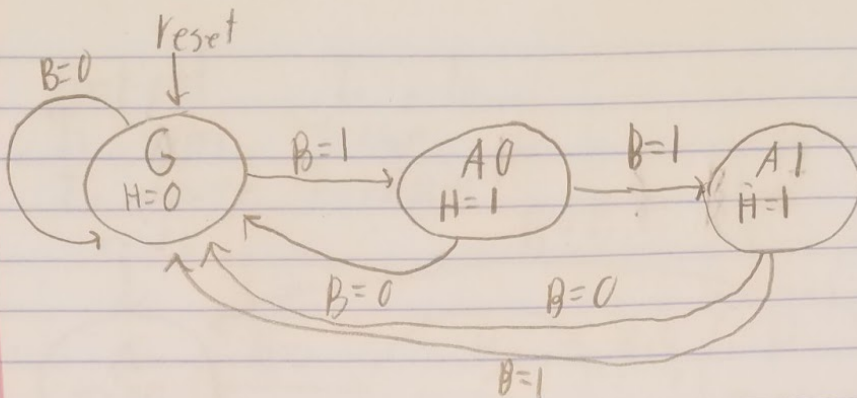 reset
B=0
G
H=0
B=1
A0
H=1
B=1
A1
H=1
B=0
B=0
B=1